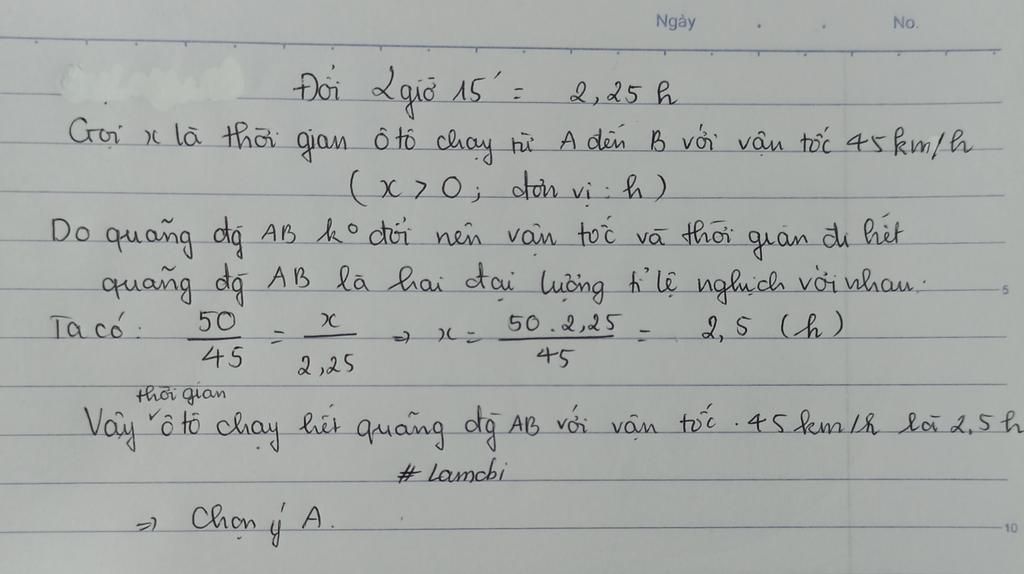 Ngày . . No.
Đổi 2 giờ 15' = 2,25 h
Gọi x là thời gian ô tô chạy từ A đến B với vận tốc 45 km/h
( x > 0 ; đơn vị : h )
Do quãng đg AB k° đổi nên vận tốc và thời gian đi hết
quãng đg AB là hai đại lượng tỉ lệ nghịch với nhau.
Ta có : 50/45 = x/2,25 => x = 50 . 2,25/45 = 2,5 (h)
thời gian
Vậy ˅ ô tô chạy hết quãng đg AB với vận tốc . 45 km/h là 2,5 h
# Lamcbi
=> Chọn ý A.
5
10